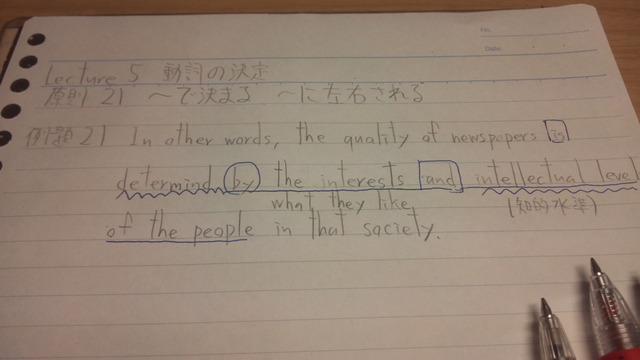 No.
Date
Lecture 5 動詞の決定
原則 21 〜で決まる 〜に左右される
例題21 In other words, the quality of newspapers is
determind by the interests and intellectual level
what they like (知的水準)
of the people in that society.